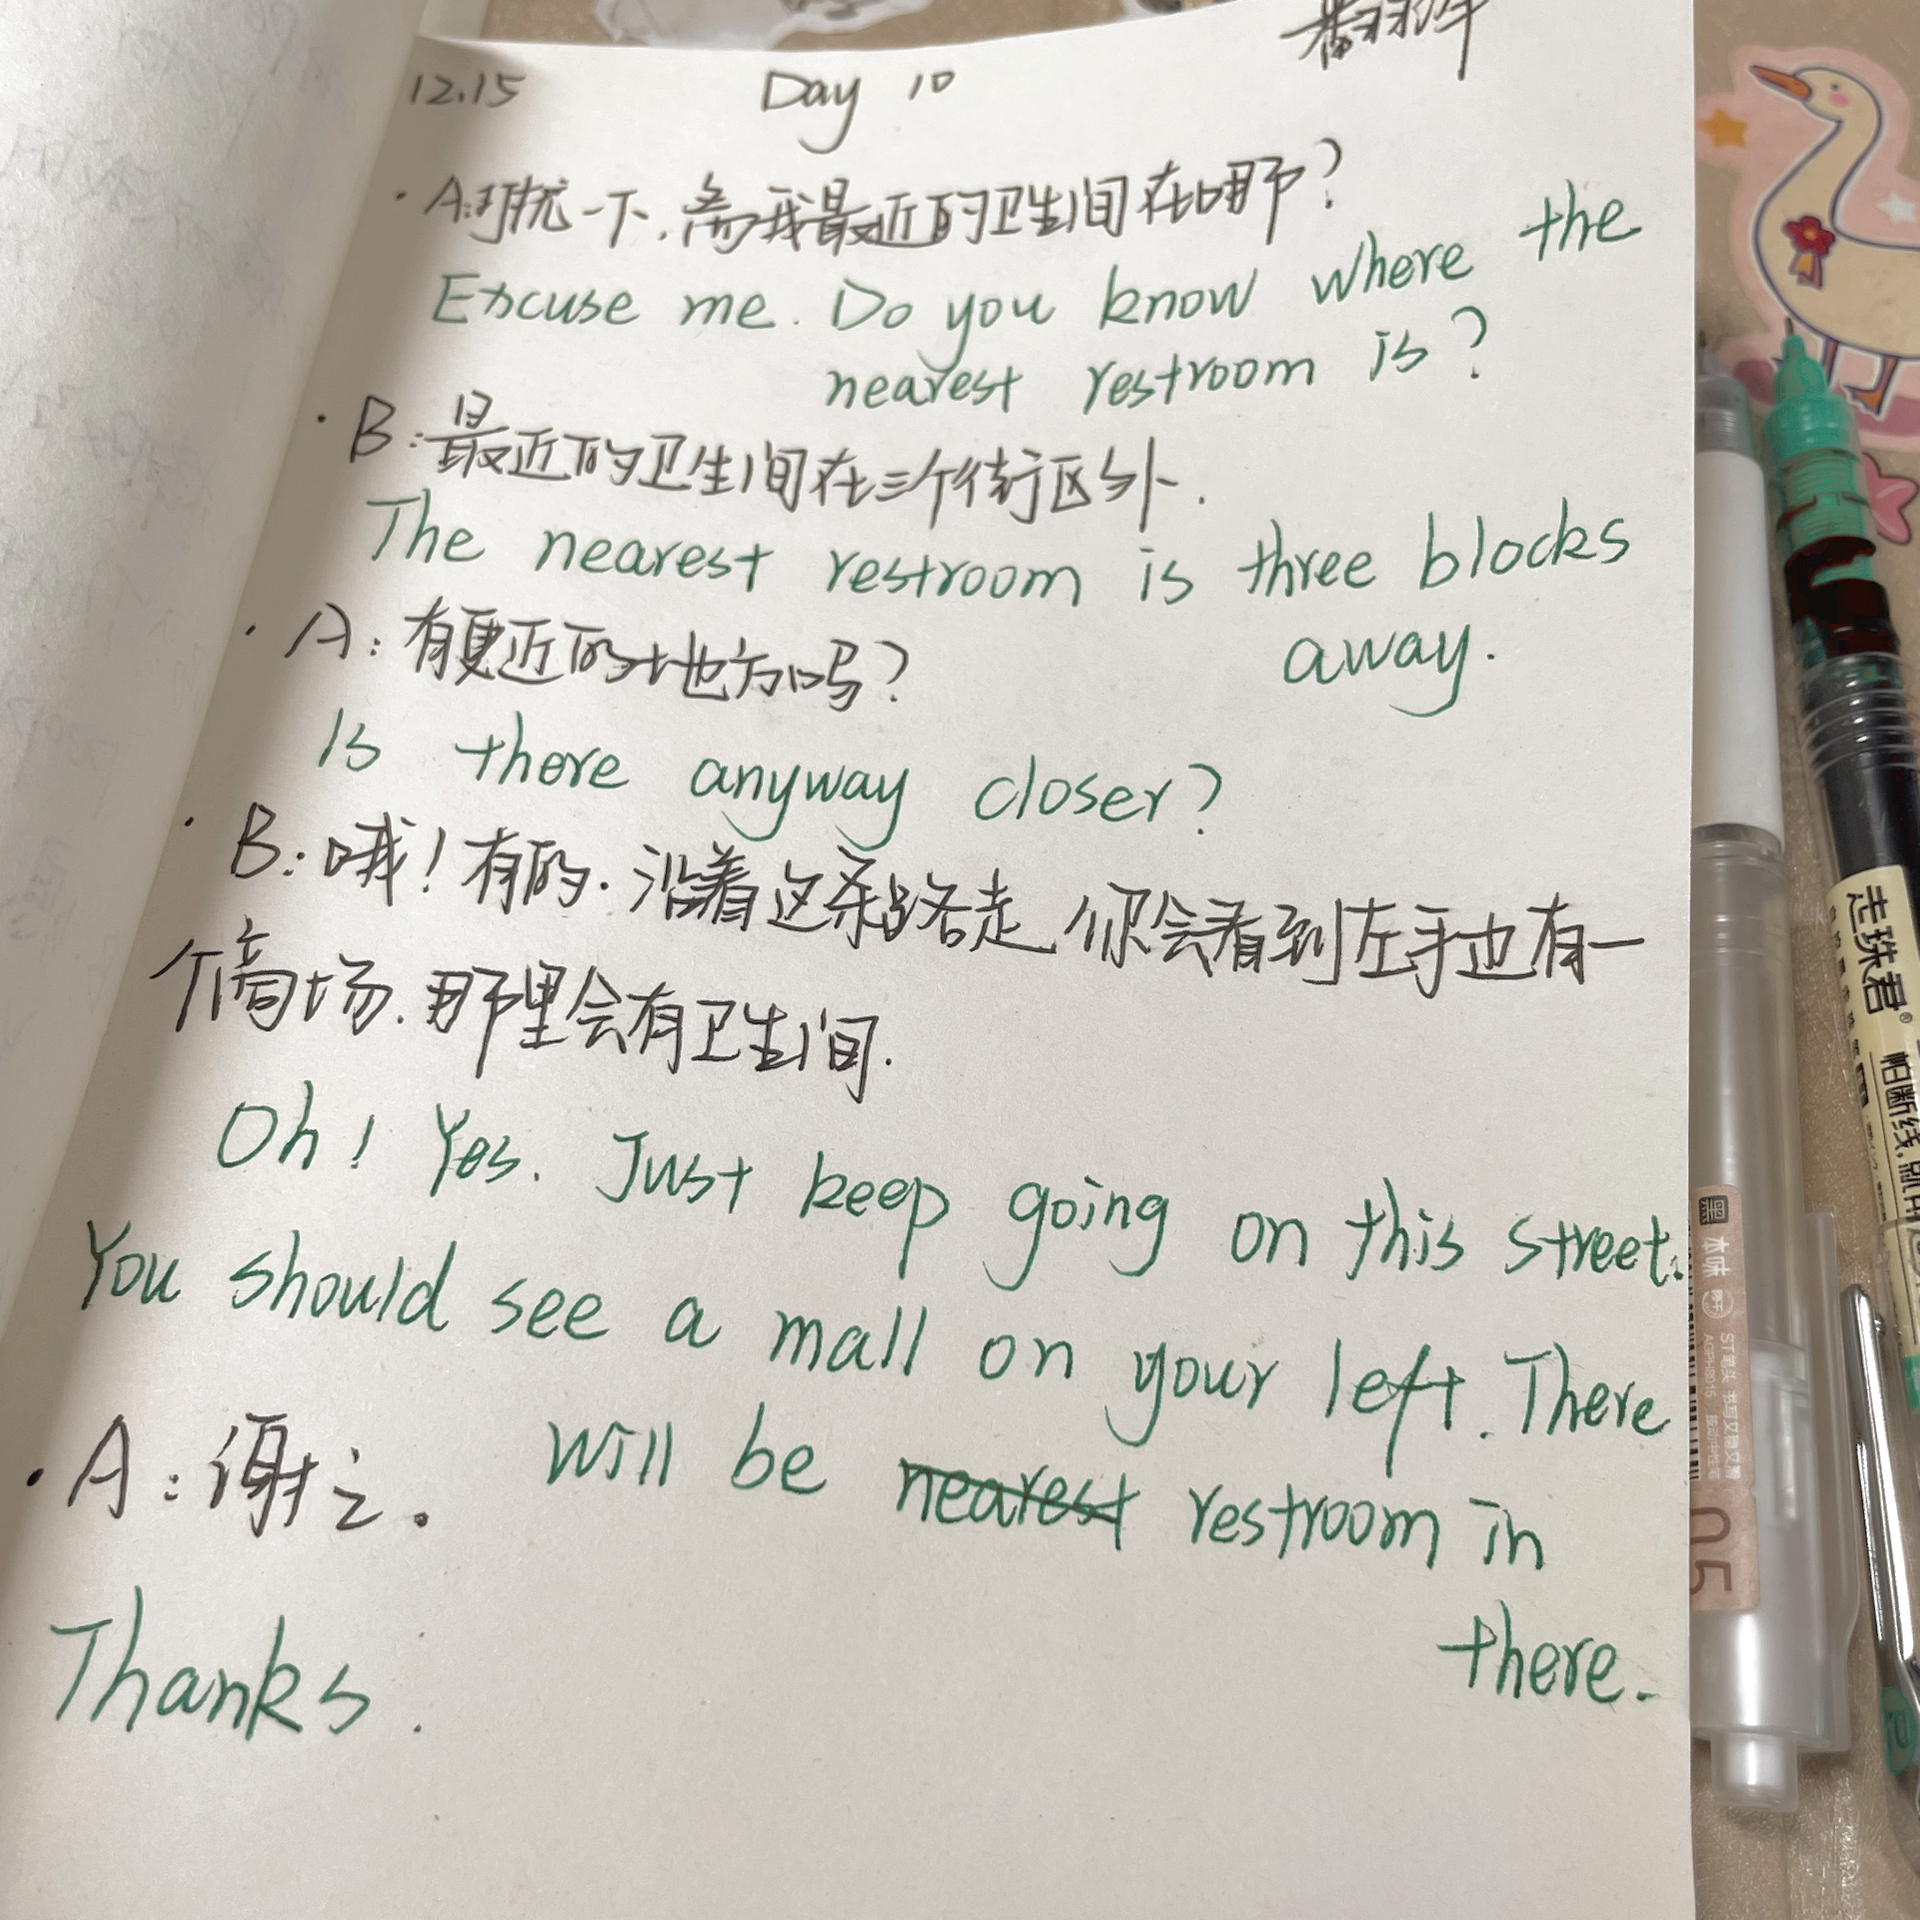 翻译
12.15 Day 10
· A:打扰一下,离我最近的卫生间在哪?
Excuse me. Do you know where the
nearest restroom is?
· B:最近的卫生间在三个街区外.
The nearest restroom is three blocks
away.
· A:有更近的地方吗?
Is there anyway closer?
· B:哦!有的.沿着这条路走,你会看到左手边有一
个商场.那里会有卫生间.
Oh! Yes. Just keep going on this street.
You should see a mall on your left. There
will be nearest restroom in
there.
· A:谢之。
Thanks.
走珠君®
怕断线,就用
黑
本味
ST笔头
AGPH8015
05